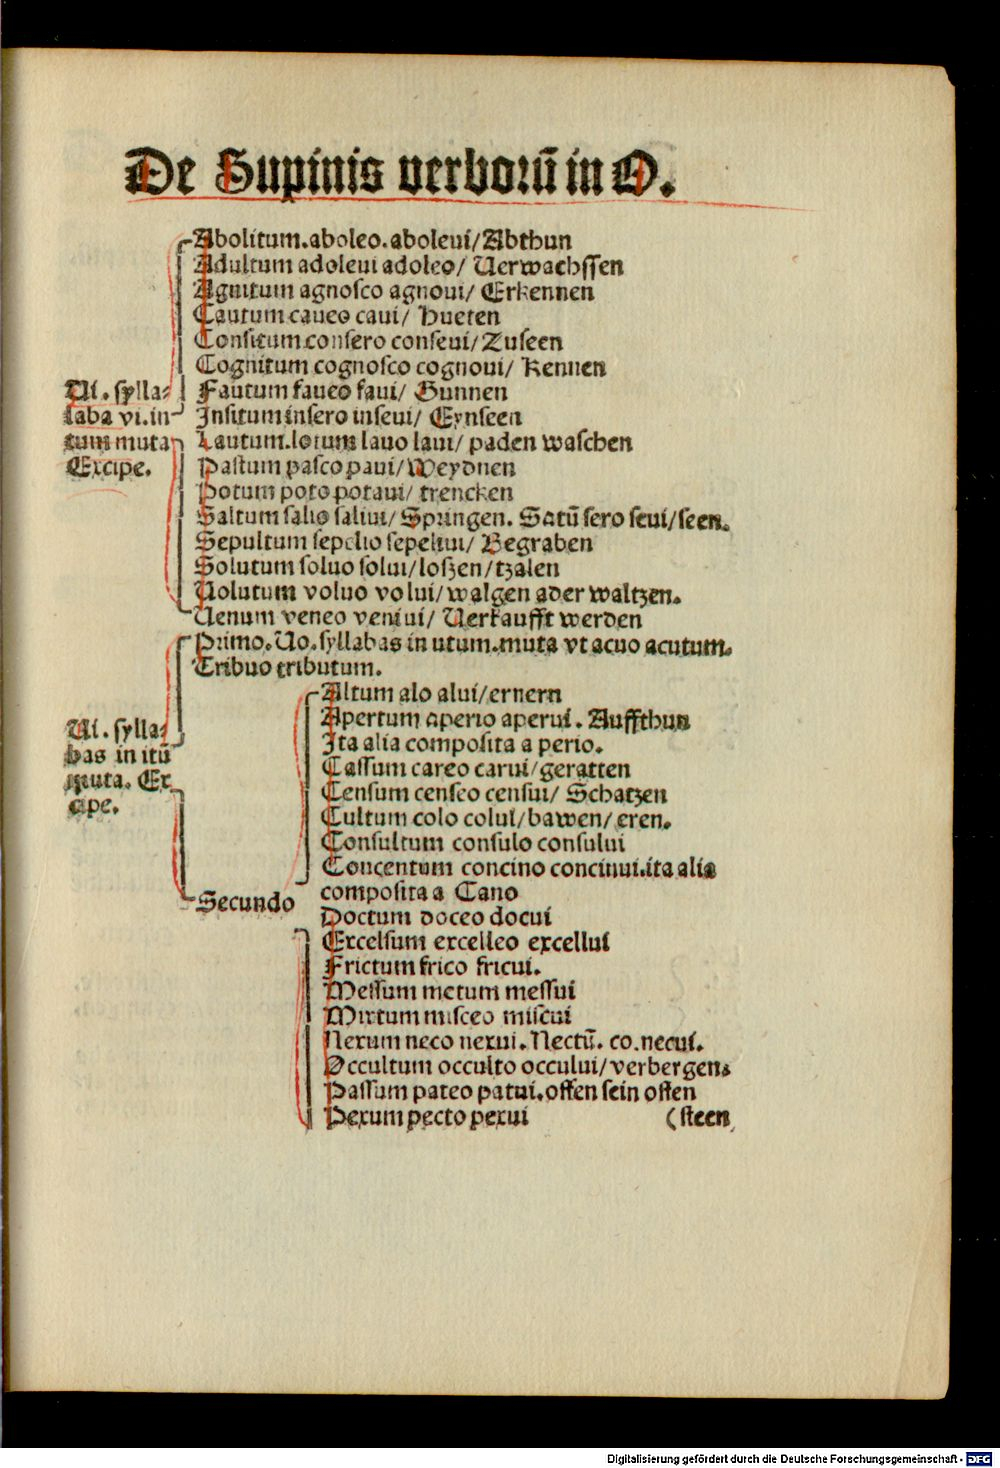 De Supinis verborū in O.
Abolitum.aboleo.abolevi/Abthun
Adultum adolevi adoleo/ Uerwachssen
Agnitum agnosco agnoui/ Erkennen
Cautum caueo caui/ Hueten
Consitum consero conseui/Zuseen
Cognitum cognosco cognoui/ Kennen
Ui. sylla⸗
laba vi.in
tum muta
Excipe.
Fautum faueo faui/ Gunnen
Insitum insero inseui/ Eynseen
Lautum.lotum lauo laui/ paden waschen
Pastum pasco paui/Weydnen
Potum poto potaui/ trencken
Saltum salio saliui/ Springen. Satū sero seui/seen.
Sepultum sepelio sepeliui/ Begraben
Solutum soluo solui/loszen/tzalen
Uolutum voluo volui/walgen ader waltzen.
Uenum veneo veniui/ Uerkaufft werden
Primo.Uo.syllabas in utum.muta vt acuo acutum.
Tribuo tributum.
Ui. sylla⸗
bas in itū
muta. Ex
cipe.
Altum alo alui/ernern
Apertum aperio aperui. Auffthun
Ita alia composita a perio.
Cassum careo carui/geratten
Censum censeo censui/ Schatzen
Cultum colo colui/bawen/eren.
Consultum consulo consului
Concentum concino concinui.ita alia
composita a Cano
Secundo
Doctum doceo docui
Excelsum excelleo excellui
Frictum frico fricui.
Messum metum messui
Mixtum misceo miscui
Nexum neco nexui. Nectū. co.necui.
Occultum occulto occului/verbergen.
Passum pateo patui.offen sein offen
Pexum pecto pexui (steen
Digitalisierung gefördert durch die Deutsche Forschungsgemeinschaft - DFG